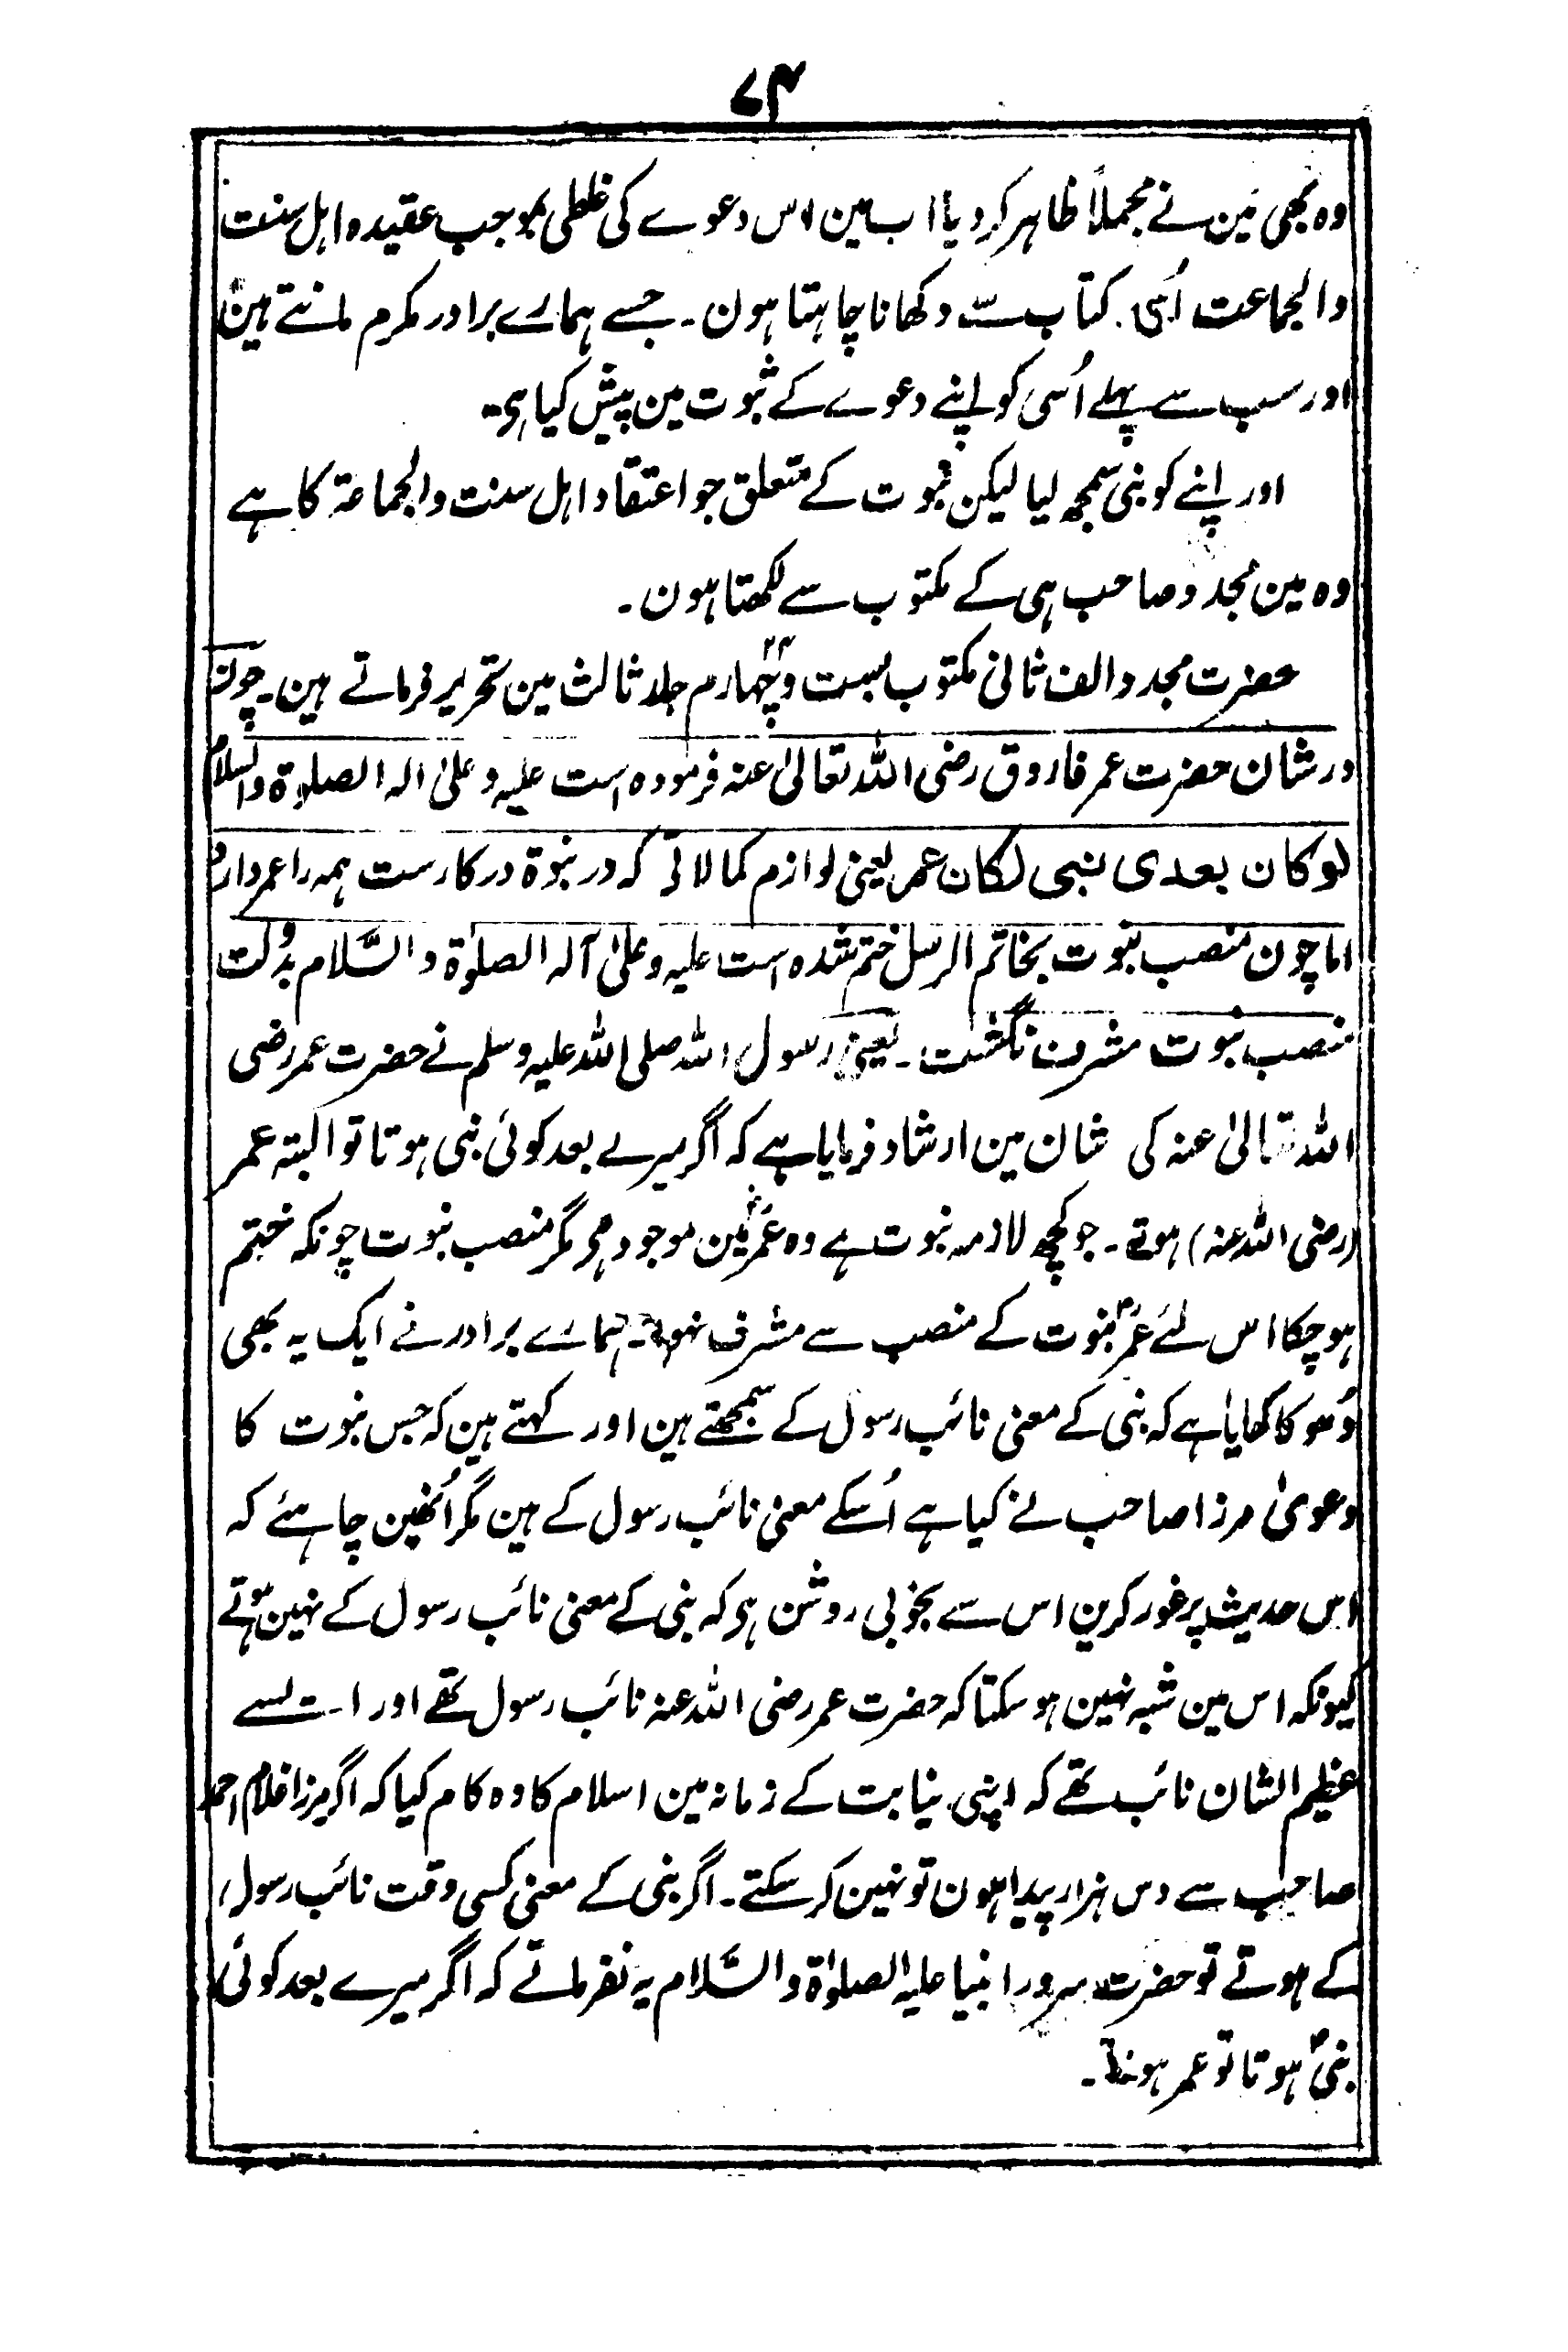 ۷۴
وہ بھی مین نے مجملاً ظاہر کردیا اب مین اس دعوے کی غلطی بموجب عقیدہ اہل سنت
والجماعت اُسی کتاب سے دکھانا چاہتا ہون ۔ جسے ہمارے برادر مکرم مانتے ہین
اور سب سے پہلے اُسی کو اپنے دعوے کے ثبوت مین پیش کیا ہی ۔
اور اپنے کو نبی سمجھ لیا لیکن نبوت کے متعلق جو اعتقاد اہل سنت والجماعۃ کا ہے
وہ مین مجدد صاحب ہی کے مکتوب سے لکھتا ہون ۔
حضرت مجدد الف ثانی مکتوب بست وچہارم ۲۴ جلد ثالث مین تحریر فرماتے ہین ۔ چون
در شان حضرت عمر فاروق رضی اللہ تعالیٰ عنہ فرمودہ است علیہ وعلیٰ الہ الصلوۃ والسلام
لوکان بعدی نبی لکان عمر یعنی لوازم کمالاتی کہ در نبوۃ درکارست ہمہ را عمر دارد
اما چون منصب نبوت بخاتم الرسل ختم شدہ است علیہ وعلیٰ آلہ الصلوٰۃ والسَّلام بدولت
منصب نبوت مشرف نگشت ۔ یعنی رسول اللہ صلی اللہ علیہ وسلم نے حضرت عمر رضی
اللہ تعالیٰ عنہ کی شان مین ارشاد فرمایا ہے کہ اگر میرے بعد کوئی نبی ہوتا تو البتہ عمر
(رضی اللہ عنہ) ہوتے ۔ جو کچھ لازمہ نبوت ہے وہ عمرؓ مین موجود ہی مگر منصب نبوت چونکہ ختم
ہوچکا اس لئے عمرؓ نبوت کے منصب سے مشرف نہوے ۔ ہمارے برادر نے ایک یہ بھی
دُھوکا کھایا ہے کہ نبی کے معنی نائب رسول کے سمجھتے ہین اور کہتے ہین کہ جس نبوت کا
دعویٰ مرزا صاحب نے کیا ہے اُسکے معنی نائب رسول کے ہین مگر اُنھین چاہئے کہ
اس حدیث پر غور کرین اس سے بخوبی روشن ہی کہ نبی کے معنی نائب رسول کے نہین ہوتے
کیونکہ اس مین شبہ نہین ہوسکتا کہ حضرت عمر رضی اللہ عنہ نائب رسول تھے اور ایسے
عظیم الشان نائب تھے کہ اپنی نیابت کے زمانہ مین اسلام کا وہ کام کیا کہ اگر مرزا غلام احمد
صاحب سے دس ہزار پیدا ہون تو نہین کرسکتے ۔ اگر نبی کے معنی کسی وقت نائب رسول
کے ہوتے تو حضرت سرور انبیا علیہ الصلوٰۃ والسَّلام یہ نفرماتے کہ اگر میرے بعد کوئی
نبی ہوتا تو عمر ہوتا ۔